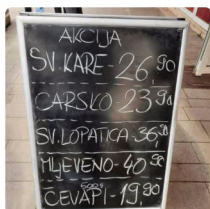 AKCIJA
SV. KARE - 26,90
CARSKO - 23,90
SV. LOPATICA - 36,90
MLJEVENO - 40,90
500g
ĆEVAPI - 19,90